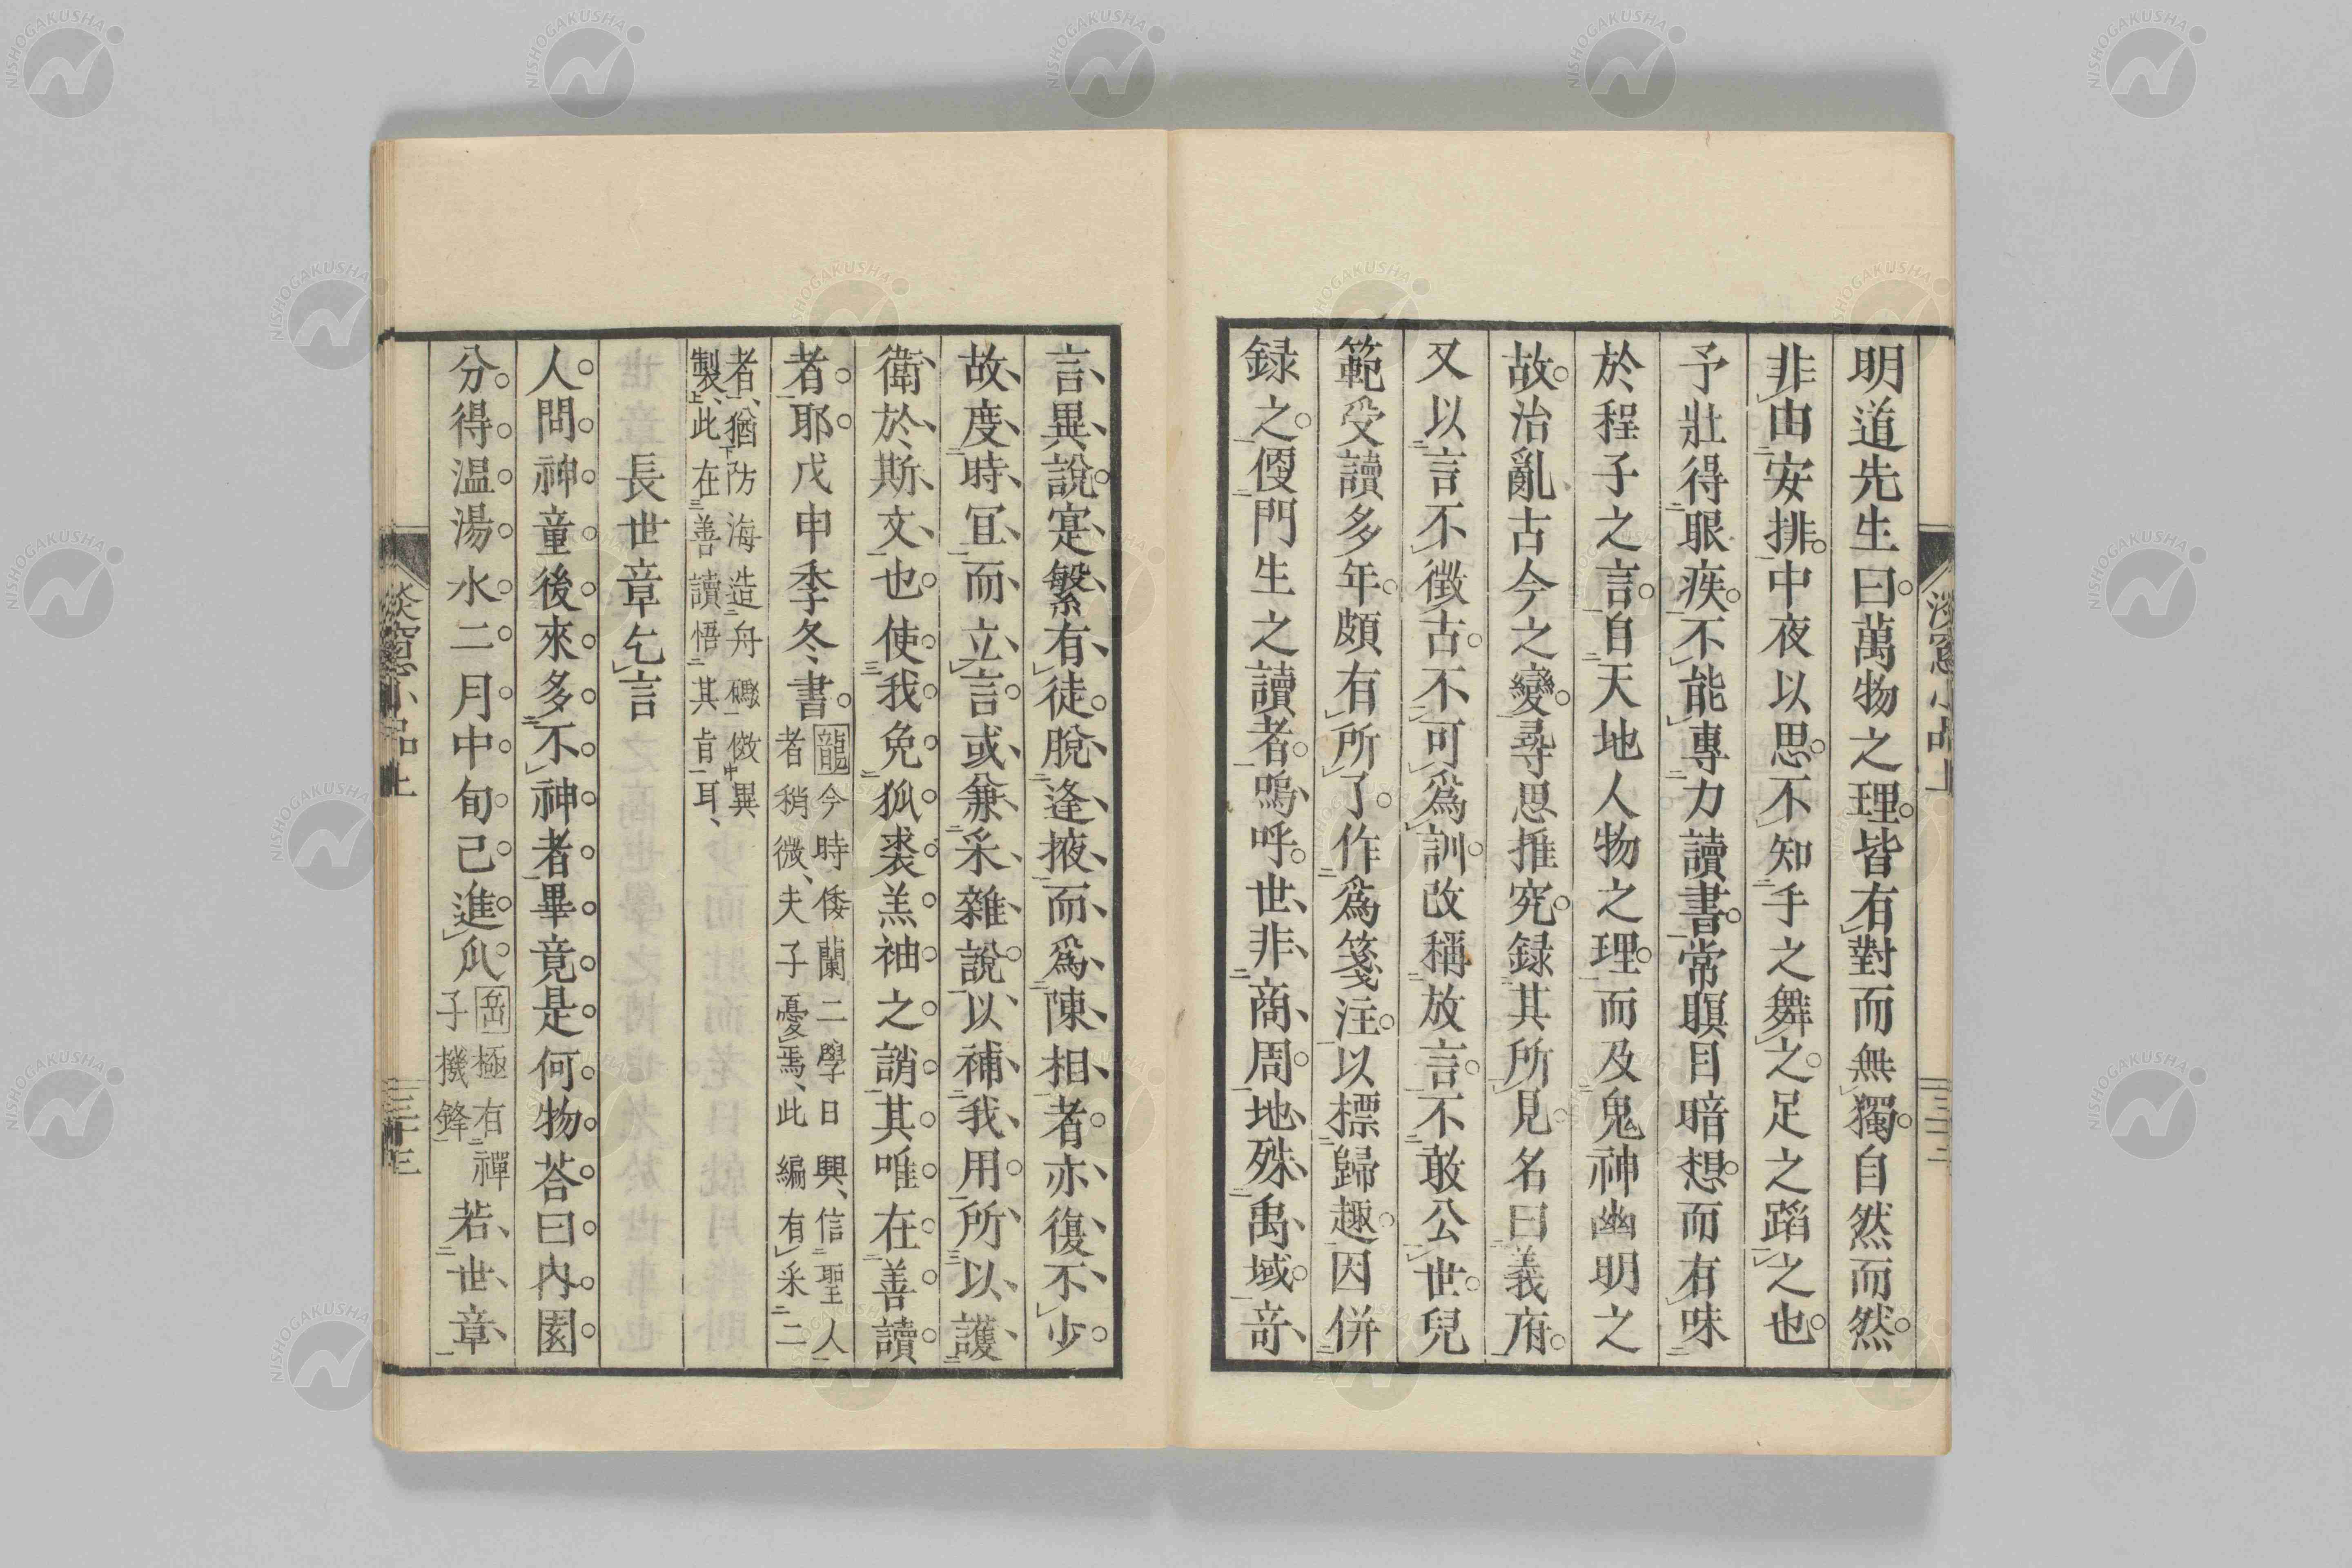 明道先生曰萬物之理皆有對而無獨自然而然
非由安排中夜以思不知手之舞之足之蹈之也
予壯得眼疾不能專力讀書常瞑目暗想而有味
於程子之言自天地人物之理而及鬼神幽明之
故治亂古今之變尋思推究録其所見名曰義府
又以言不徵古不可爲訓改稱放言不敢公世兒
範受讀多年頗有所了作爲箋注以標歸趣因併
録之便門生之讀者嗚呼世非商周地殊禹域奇
言異說寔繁有徒脫逢掖而爲陳相者亦復不少
故度時宜而立言或兼采雜說以補我用所以護
衛於斯文也使我免狐裘羔袖之誚其唯在善讀
者耶戊申季冬書
龍今時倭蘭二學日興信聖人
者稍微夫子憂焉此編有采二
者猶防海造舟礮倣異
製此在善讀悟其旨耳
長世章乞言
人問神童後來多不神者畢竟是何物荅曰內園
分得温湯水二月中旬己進瓜
喦極有禪
子機鋒
若世章
淡窗小品上
三十二
淡窗小品上
三十三
NISHOGAKUSHA